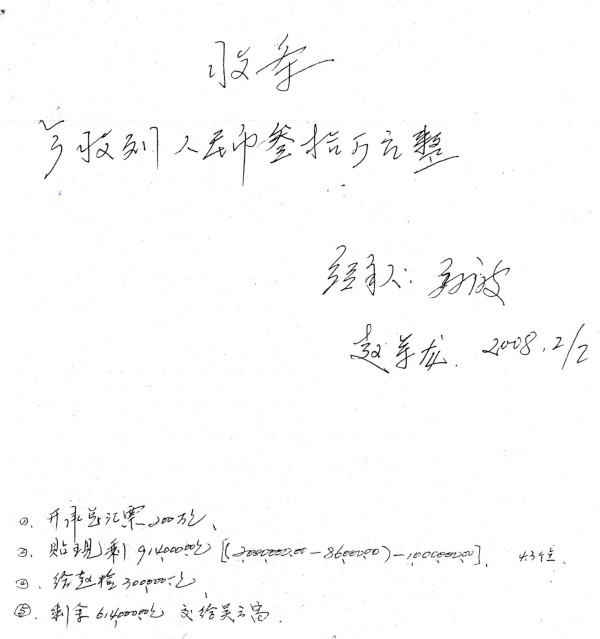 收条
今收到人民币叁拾万元整
经手人:
赵军龙. 2008.2/2
①. 开承兑汇票200万元、
②. 贴现剩914000元 [(2000000.00-86000.00)-1000000.00].
③. 给赵检300000元
④. 剩余614000元 交给吴云高.